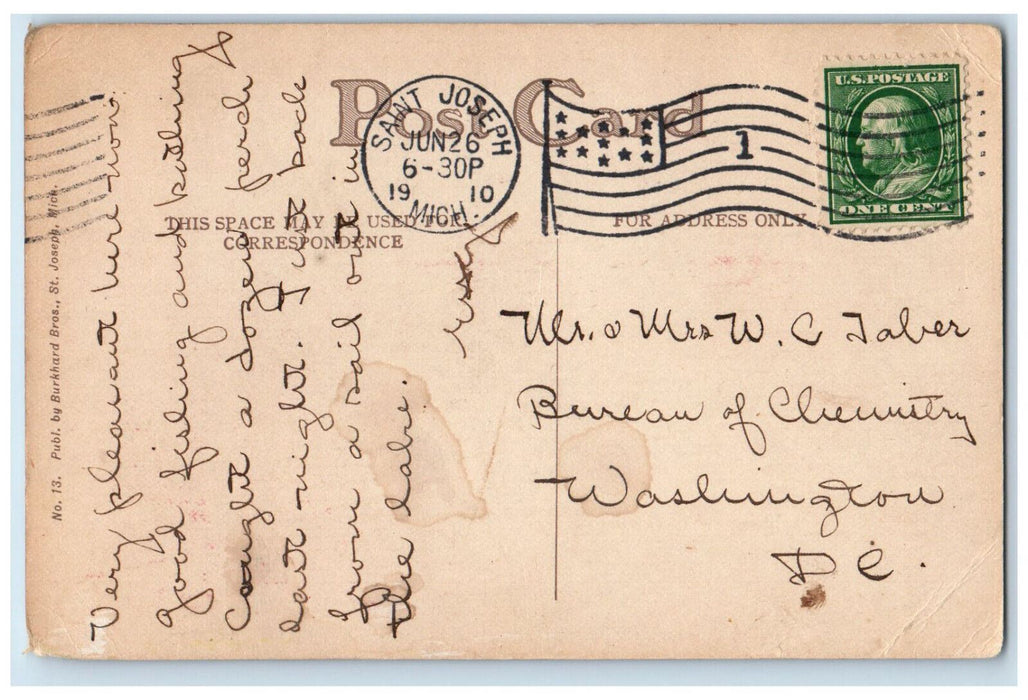 Post Card
SAINT JOSEPH
JUN 26
6-30P
1910
MICH.
1
U.S. POSTAGE
ONE CENT
THIS SPACE MAY BE USED FOR
CORRESPONDENCE
FOR ADDRESS ONLY
No. 13. Publ. by Burkhard Bros., St. Joseph, Mich.
Very pleasant here now.
good fishing and bathing
Caught a dozen perch
last night. Just back
from a sail out in
the lake.
Mr. & Mrs W. C Taber
Bureau of Chemistry
Washington
D C.